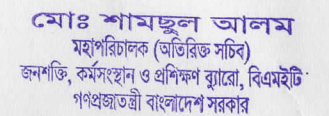 মোঃ শামছুল আলম
মহাপরিচালক (অতিরিক্ত সচিব)
জনশক্তি, কর্মসংস্থান ও প্রশিক্ষণ ব্যুরো, বিএমইটি
গণপ্রজাতন্ত্রী বাংলাদেশ সরকার